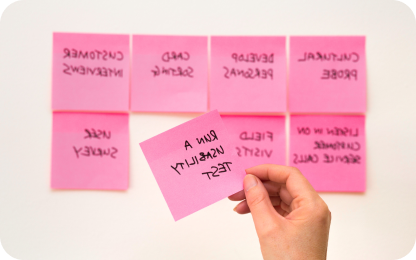 CUSTOMER
INTERVIEWS
CARD
SORTING
DEVELOP
PERSONAS
CULTURAL
PROBE
USER
SURVEY
RUN A
USABILITY
TEST
FIELD
VISITS
LISTEN IN ON
CUSTOMER
SERVICE CALLS